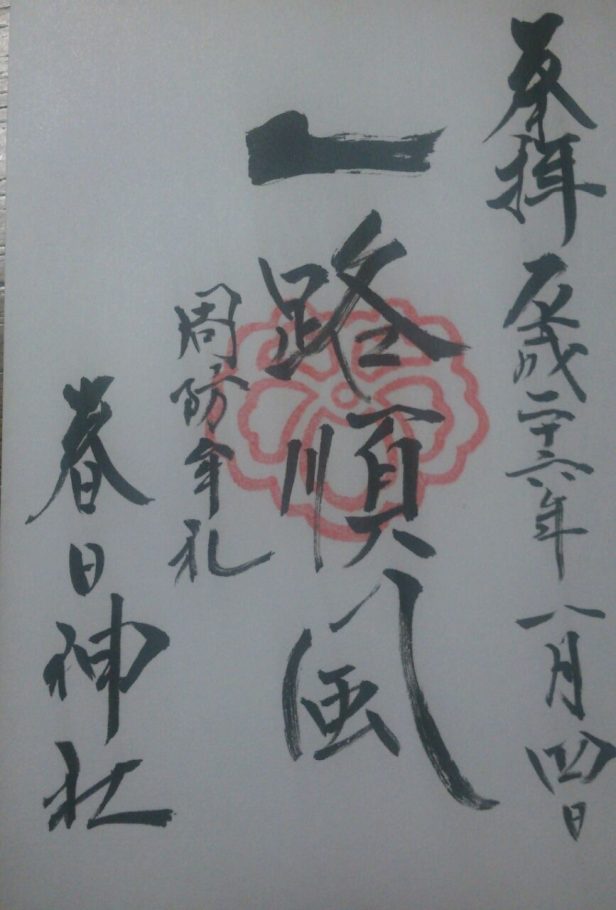 奉拝 平成二十六年八月四日
一路順風
周防牟礼
春日神社